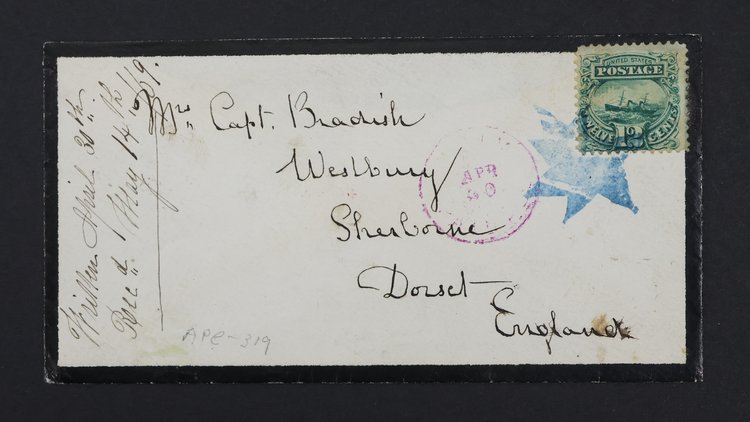 Mrs. Capt. Bradish
Westbury
Sherborne
Dorset
England
Written April 30th
Rec'd. May 14th /79.
APR
30
UNITED STATES
POSTAGE
TWELVE 12 CENTS
APC-319